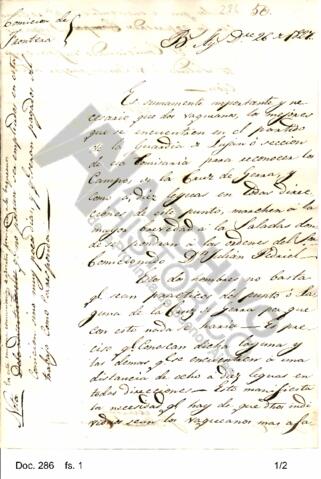 286 56.
Comision de
Frontera
Bs. Ays. Dbre 26 de 1827.
Es sumamente importante y ne-
cesario que dos vaqueanos, los mejores
que se encuentren en el partido
de la Guardia de Lujan ó seccion
de esa Comisaria para reconocer los
Campos de la Cruz de Guerra, y
como a diez leguas en todas direc-
ciones de este punto, marchen a la
mayor brevedad a Saladas don-
de se pondran a las ordenes del Sor.
Comisionado Dn. Julian Perdriel.
Estos dos hombres no basta
qe. sean practicos del punto ó La-
guna de la Cruz de Guerra por que
con esto nada se haria: es pre-
ciso qe. conoscan dicha laguna y
las demas qe. se encuentren a una
distancia de ocho a diez leguas en
todas direcciones. Esto manifiesta
la necesidad qe. hay de que dhos indi-
viduos sean los vaqueanos mas afa-
ARCHIVO
HISTORICO
Doc. 286 fs. 1 1/2